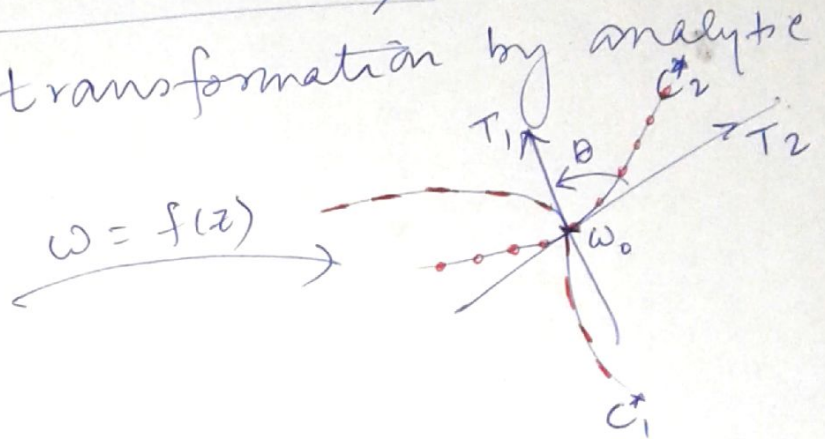 transformation by analytic
C*2
T1
θ
T2
ω = f(z)
ω0
C*1